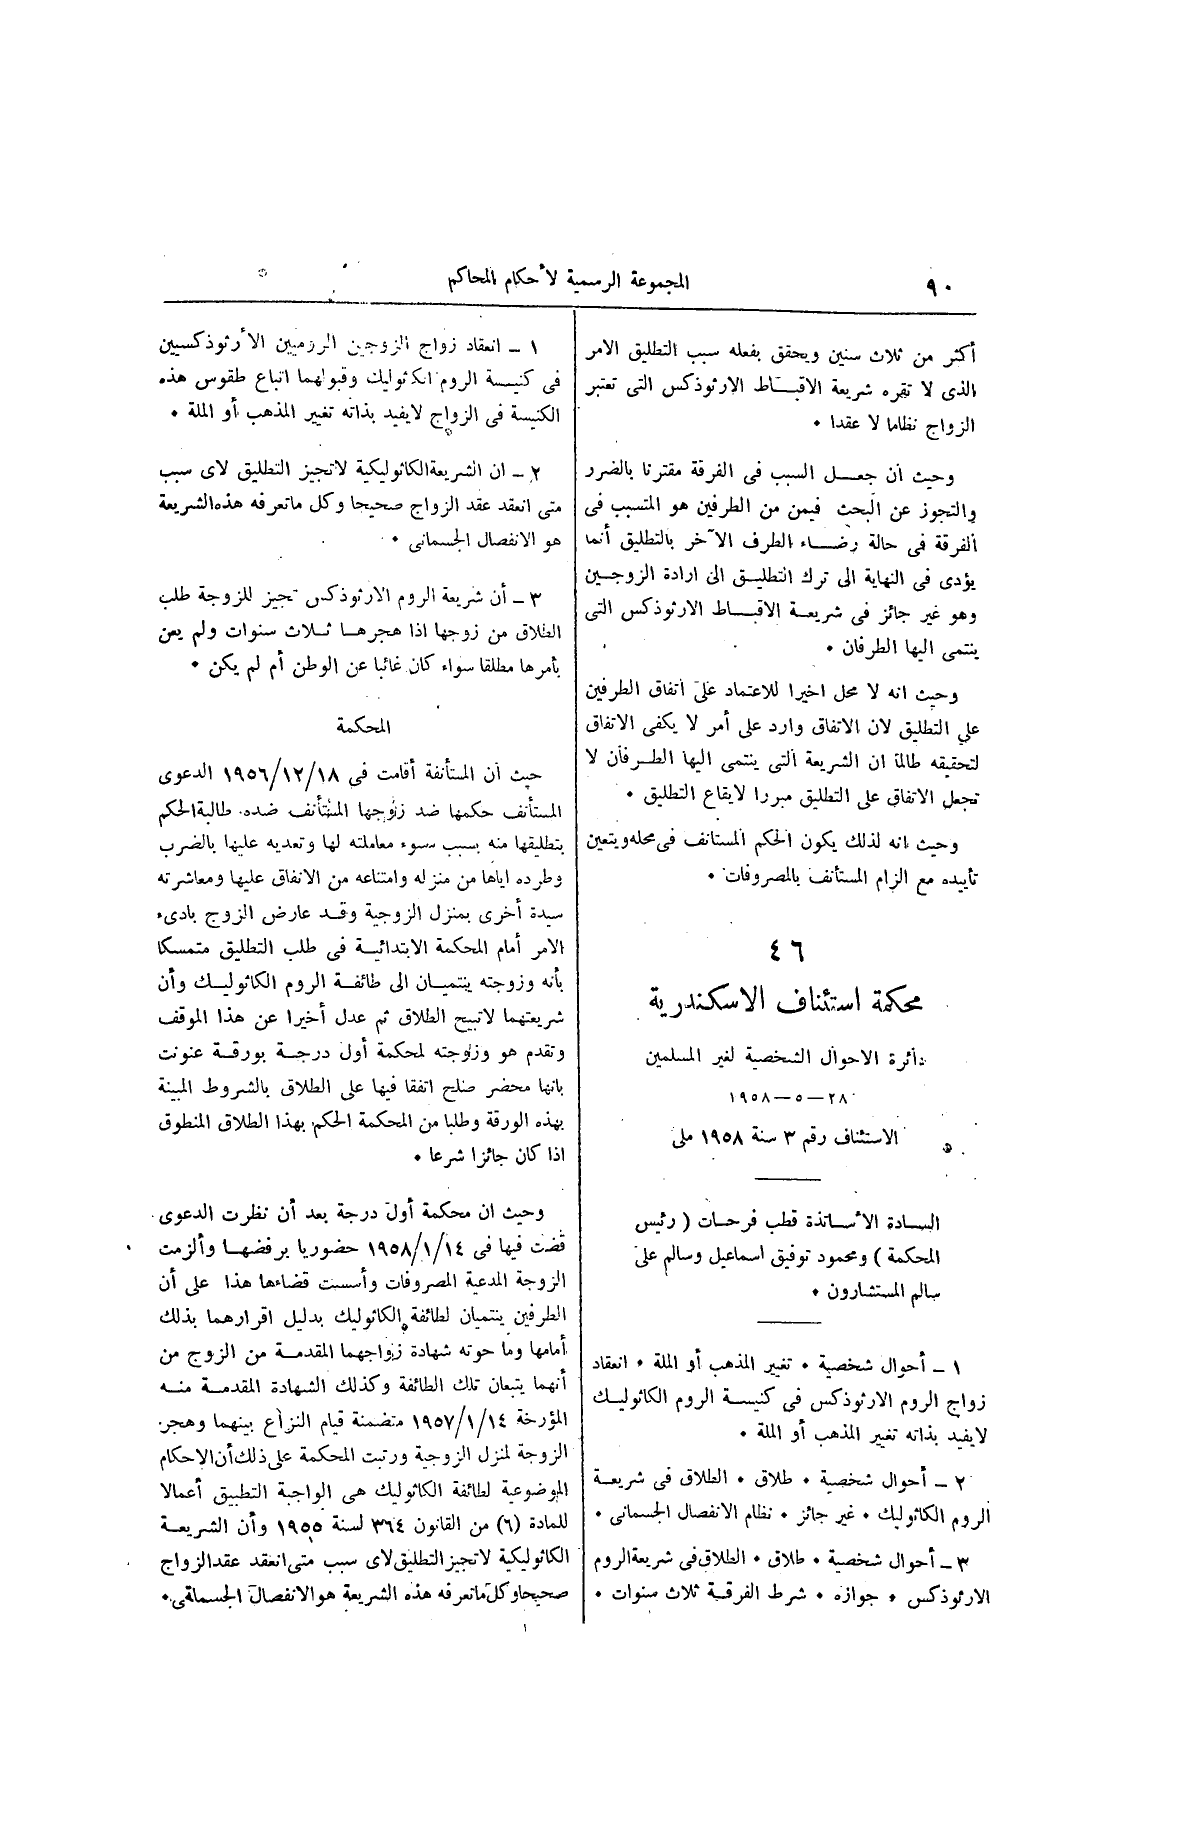 ٩٠
المجموعة الرسمية لأحكام المحاكم
أكثر من ثلاث سنين ويحقق بفعله سبب التطليق الامر
الذى لا تقره شريعة الاقباط الارثوذكس التى تعتبر
الزواج نظاما لا عقدا •
وحيث ان جعل السبب فى الفرقة مقترنا بالضرر
والتجوز عن البحث فيمن من الطرفين هو المتسبب فى
الفرقة فى حالة رضاء الطرف الآخر بالتطليق أنما
يؤدى فى النهاية الى ترك التطليق الى ارادة الزوجين
وهو غير جائز فى شريعة الاقباط الارثوذكس التى
ينتمى اليها الطرفان •
وحيث انه لا محل اخيرا للاعتماد على اتفاق الطرفين
على التطليق لان الاتفاق وارد على أمر لا يكفى الاتفاق
لتحقيقه طالما ان الشريعة التى ينتمى اليها الطرفان لا
تجعل الاتفاق على التطليق مبررا لايقاع التطليق •
وحيث انه لذلك يكون الحكم المستانف فى محله ويتعين
تأييده مع الزام المستأنف بالمصروفات •
٤٦
محكمة استئناف الاسكندرية
دائرة الاحوال الشخصية لغير المسلمين
٢٨ – ٥ – ١٩٥٨
الاستئناف رقم ٣ سنة ١٩٥٨ ملى
السادة الأساتذة قطب فرحات ( رئيس
المحكمة ) ومحمود توفيق اسماعيل وسالم على
سالم المستشارون •
١ – أحوال شخصية • تغيير المذهب أو الملة • انعقاد
زواج الروم الارثوذكس فى كنيسة الروم الكاثوليك
لايفيد بذاته تغيير المذهب أو الملة •
٢ – أحوال شخصية • طلاق • الطلاق فى شريعة
الروم الكاثوليك • غير جائز • نظام الانفصال الجسمانى •
٣ – أحوال شخصية • طلاق • الطلاق فى شريعة الروم
الارثوذكس • جوازه • شرط الفرقة ثلاث سنوات •
١ – انعقاد زواج الزوجين الروميين الأرثوذكسيين
فى كنيسة الروم الكاثوليك وقبولهما اتباع طقوس هذه
الكنيسة فى الزواج لايفيد بذاته تغيير المذهب أو الملة •
٢ – ان الشريعة الكاثوليكية لاتجيز التطليق لاى سبب
متى انعقد عقد الزواج صحيحا وكل ماتعرفه هذه الشريعة
هو الانفصال الجسمانى •
٣ – أن شريعة الروم الارثوذكس تجيز للزوجة طلب
الطلاق من زوجها اذا هجرها ثلاث سنوات ولم يعن
بأمرها مطلقا سواء كان غائبا عن الوطن أم لم يكن •
المحكمة
حيث أن المستأنفة أقامت فى ١٩٥٦/١٢/١٨ الدعوى
المستأنف حكمها ضد زوجها المستأنف ضده طالبة الحكم
بتطليقها منه بسبب سوء معاملته لها وتعديه عليها بالضرب
وطرده اياها من منزله وامتناعه من الانفاق عليها ومعاشرته
سيدة أخرى بمنزل الزوجية وقد عارض الزوج بادىء
الامر أمام المحكمة الابتدائية فى طلب التطليق متمسكا
بأنه وزوجته ينتميان الى طائفة الروم الكاثوليك وأن
شريعتهما لاتبيح الطلاق ثم عدل أخيرا عن هذا الموقف
وتقدم هو وزوجته لمحكمة أول درجة بورقة عنونت
بانها محضر صلح اتفقا فيها على الطلاق بالشروط المبينة
بهذه الورقة وطلبا من المحكمة الحكم بهذا الطلاق المنطوق
اذا كان جائزا شرعا •
وحيث ان محكمة أول درجة بعد أن نظرت الدعوى
قضت فيها فى ١٩٥٨/١/١٤ حضوريا برفضها وألزمت
الزوجة المدعية المصروفات وأسست قضاءها هذا على أن
الطرفين ينتميان لطائفة الكاثوليك بدليل اقرارهما بذلك
أمامها وما حوته شهادة زواجهما المقدمة من الزوج من
أنهما يتبعان تلك الطائفة وكذلك الشهادة المقدمة منه
المؤرخة ١٩٥٧/١/١٤ متضمنة قيام النزاع بينهما وهجر
الزوجة لمنزل الزوجية ورتبت المحكمة على ذلك أن الاحكام
الموضوعية لطائفة الكاثوليك هى الواجبة التطبيق أعمالا
للمادة (٦) من القانون ٣٦٤ لسنة ١٩٥٥ وأن الشريعة
الكاثوليكية لاتجيز التطليق لاى سبب متى انعقد عقد الزواج
صحيحا وكل ماتعرفه هذه الشريعة هو الانفصال الجسمانى •